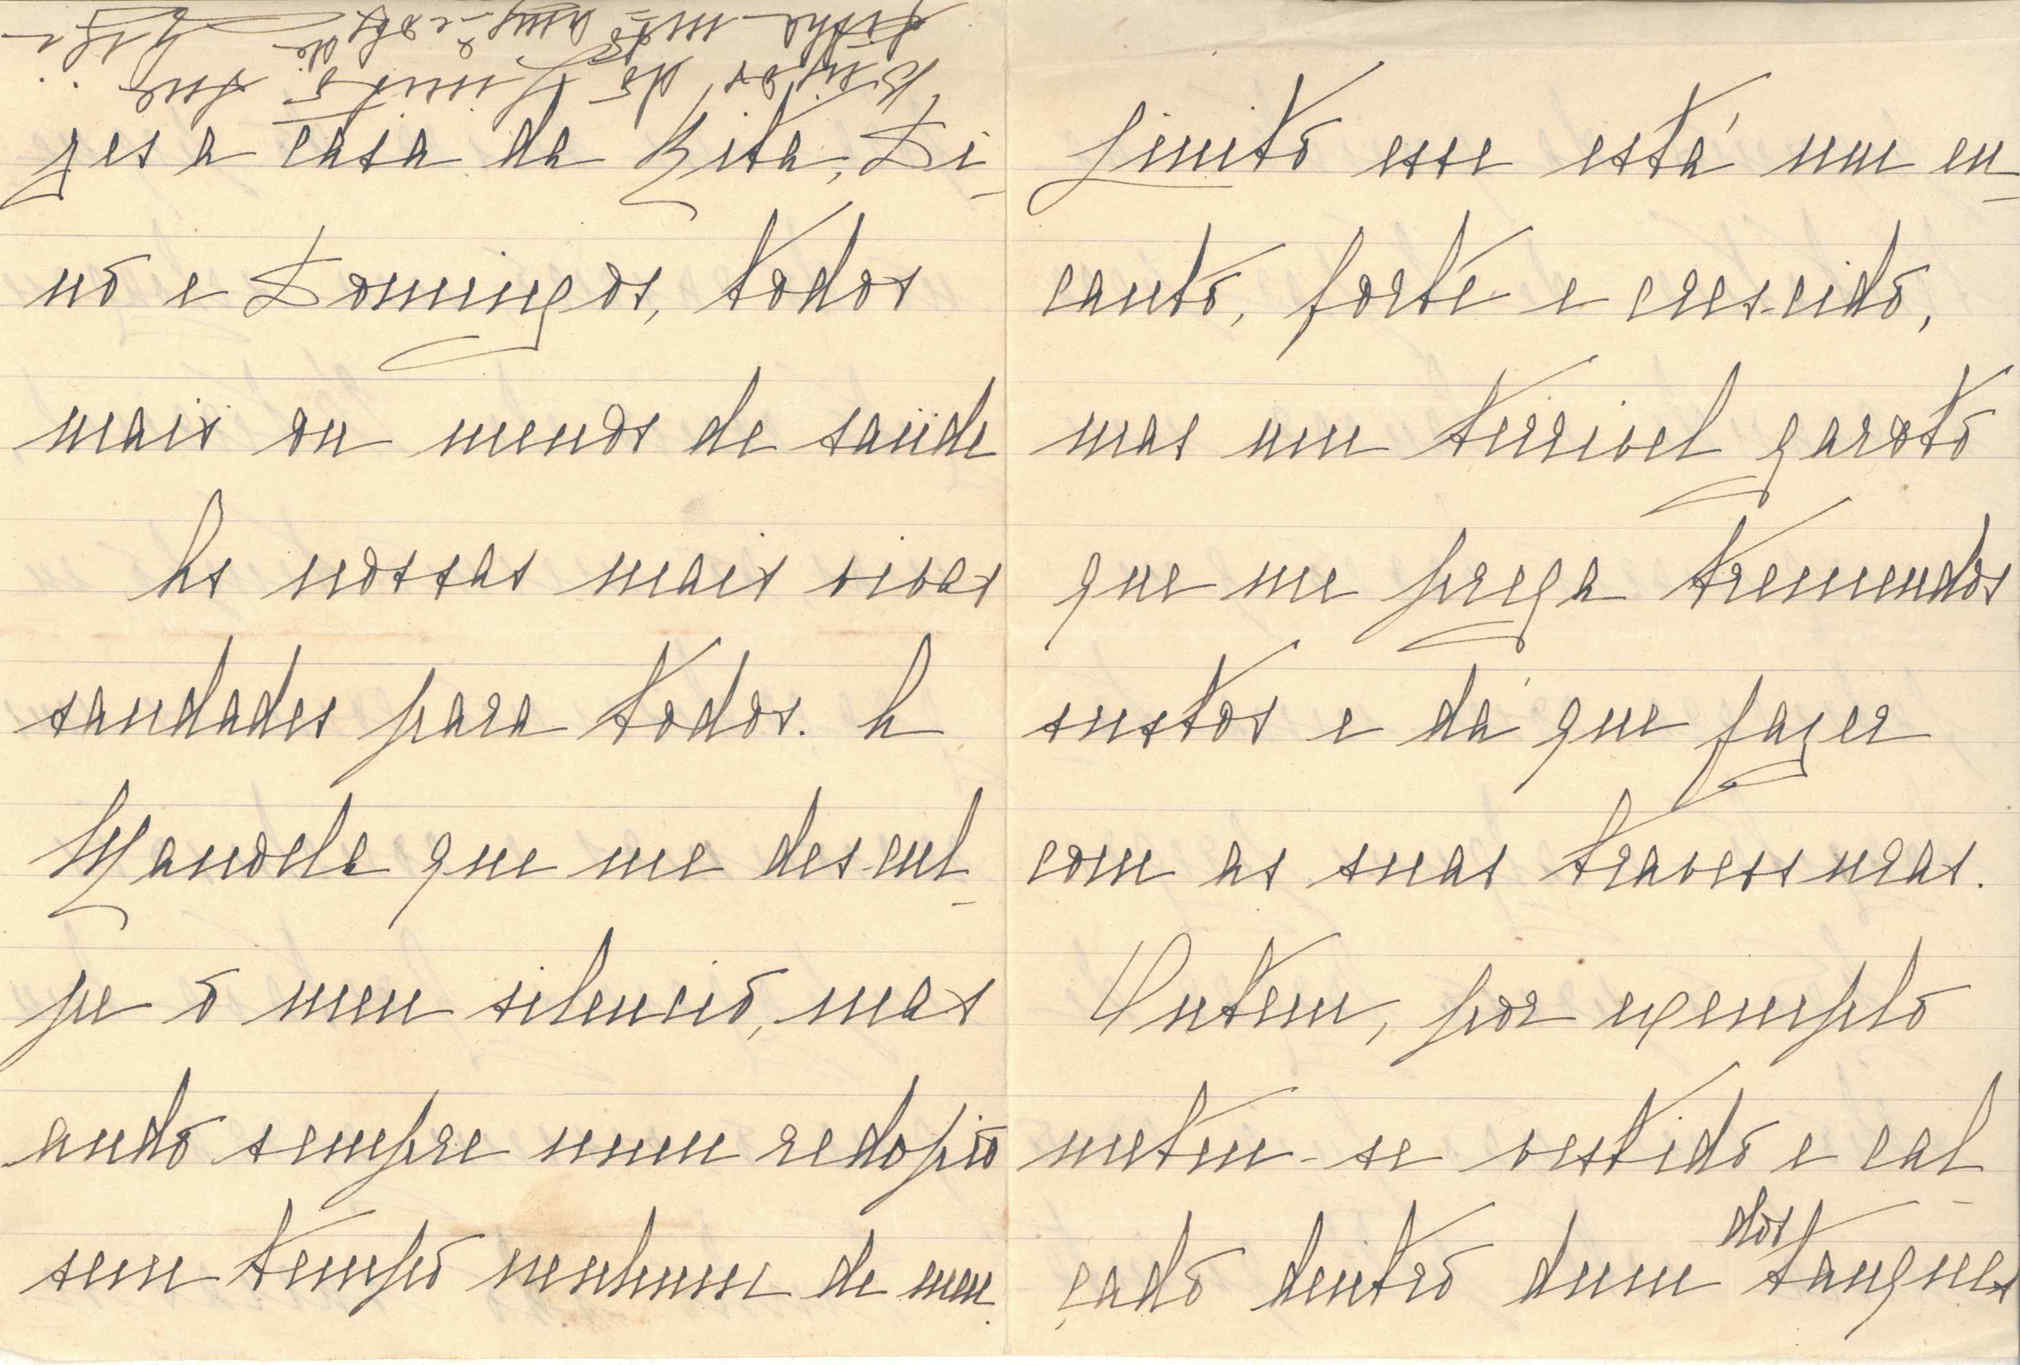 Beijos do Jimito sua
zes a casa da Rita, Di-
no e Domingos, todos
mais ou menos de saúde
As nossas mais vivas
saudades para todos. A
Manoela que me descul-
pe o meu silencio, mas
ando sempre num redopio
sem tempo nenhum de meu.
Jimito esse está um en-
canto, forte e crescido,
mas um terrivel garoto
que me prega tremendos
sustos e dá que fazer
com as suas travessuras.
Ontem, por exemplo
meteu-se vestido e cal-
çado dentro dum dos tanques